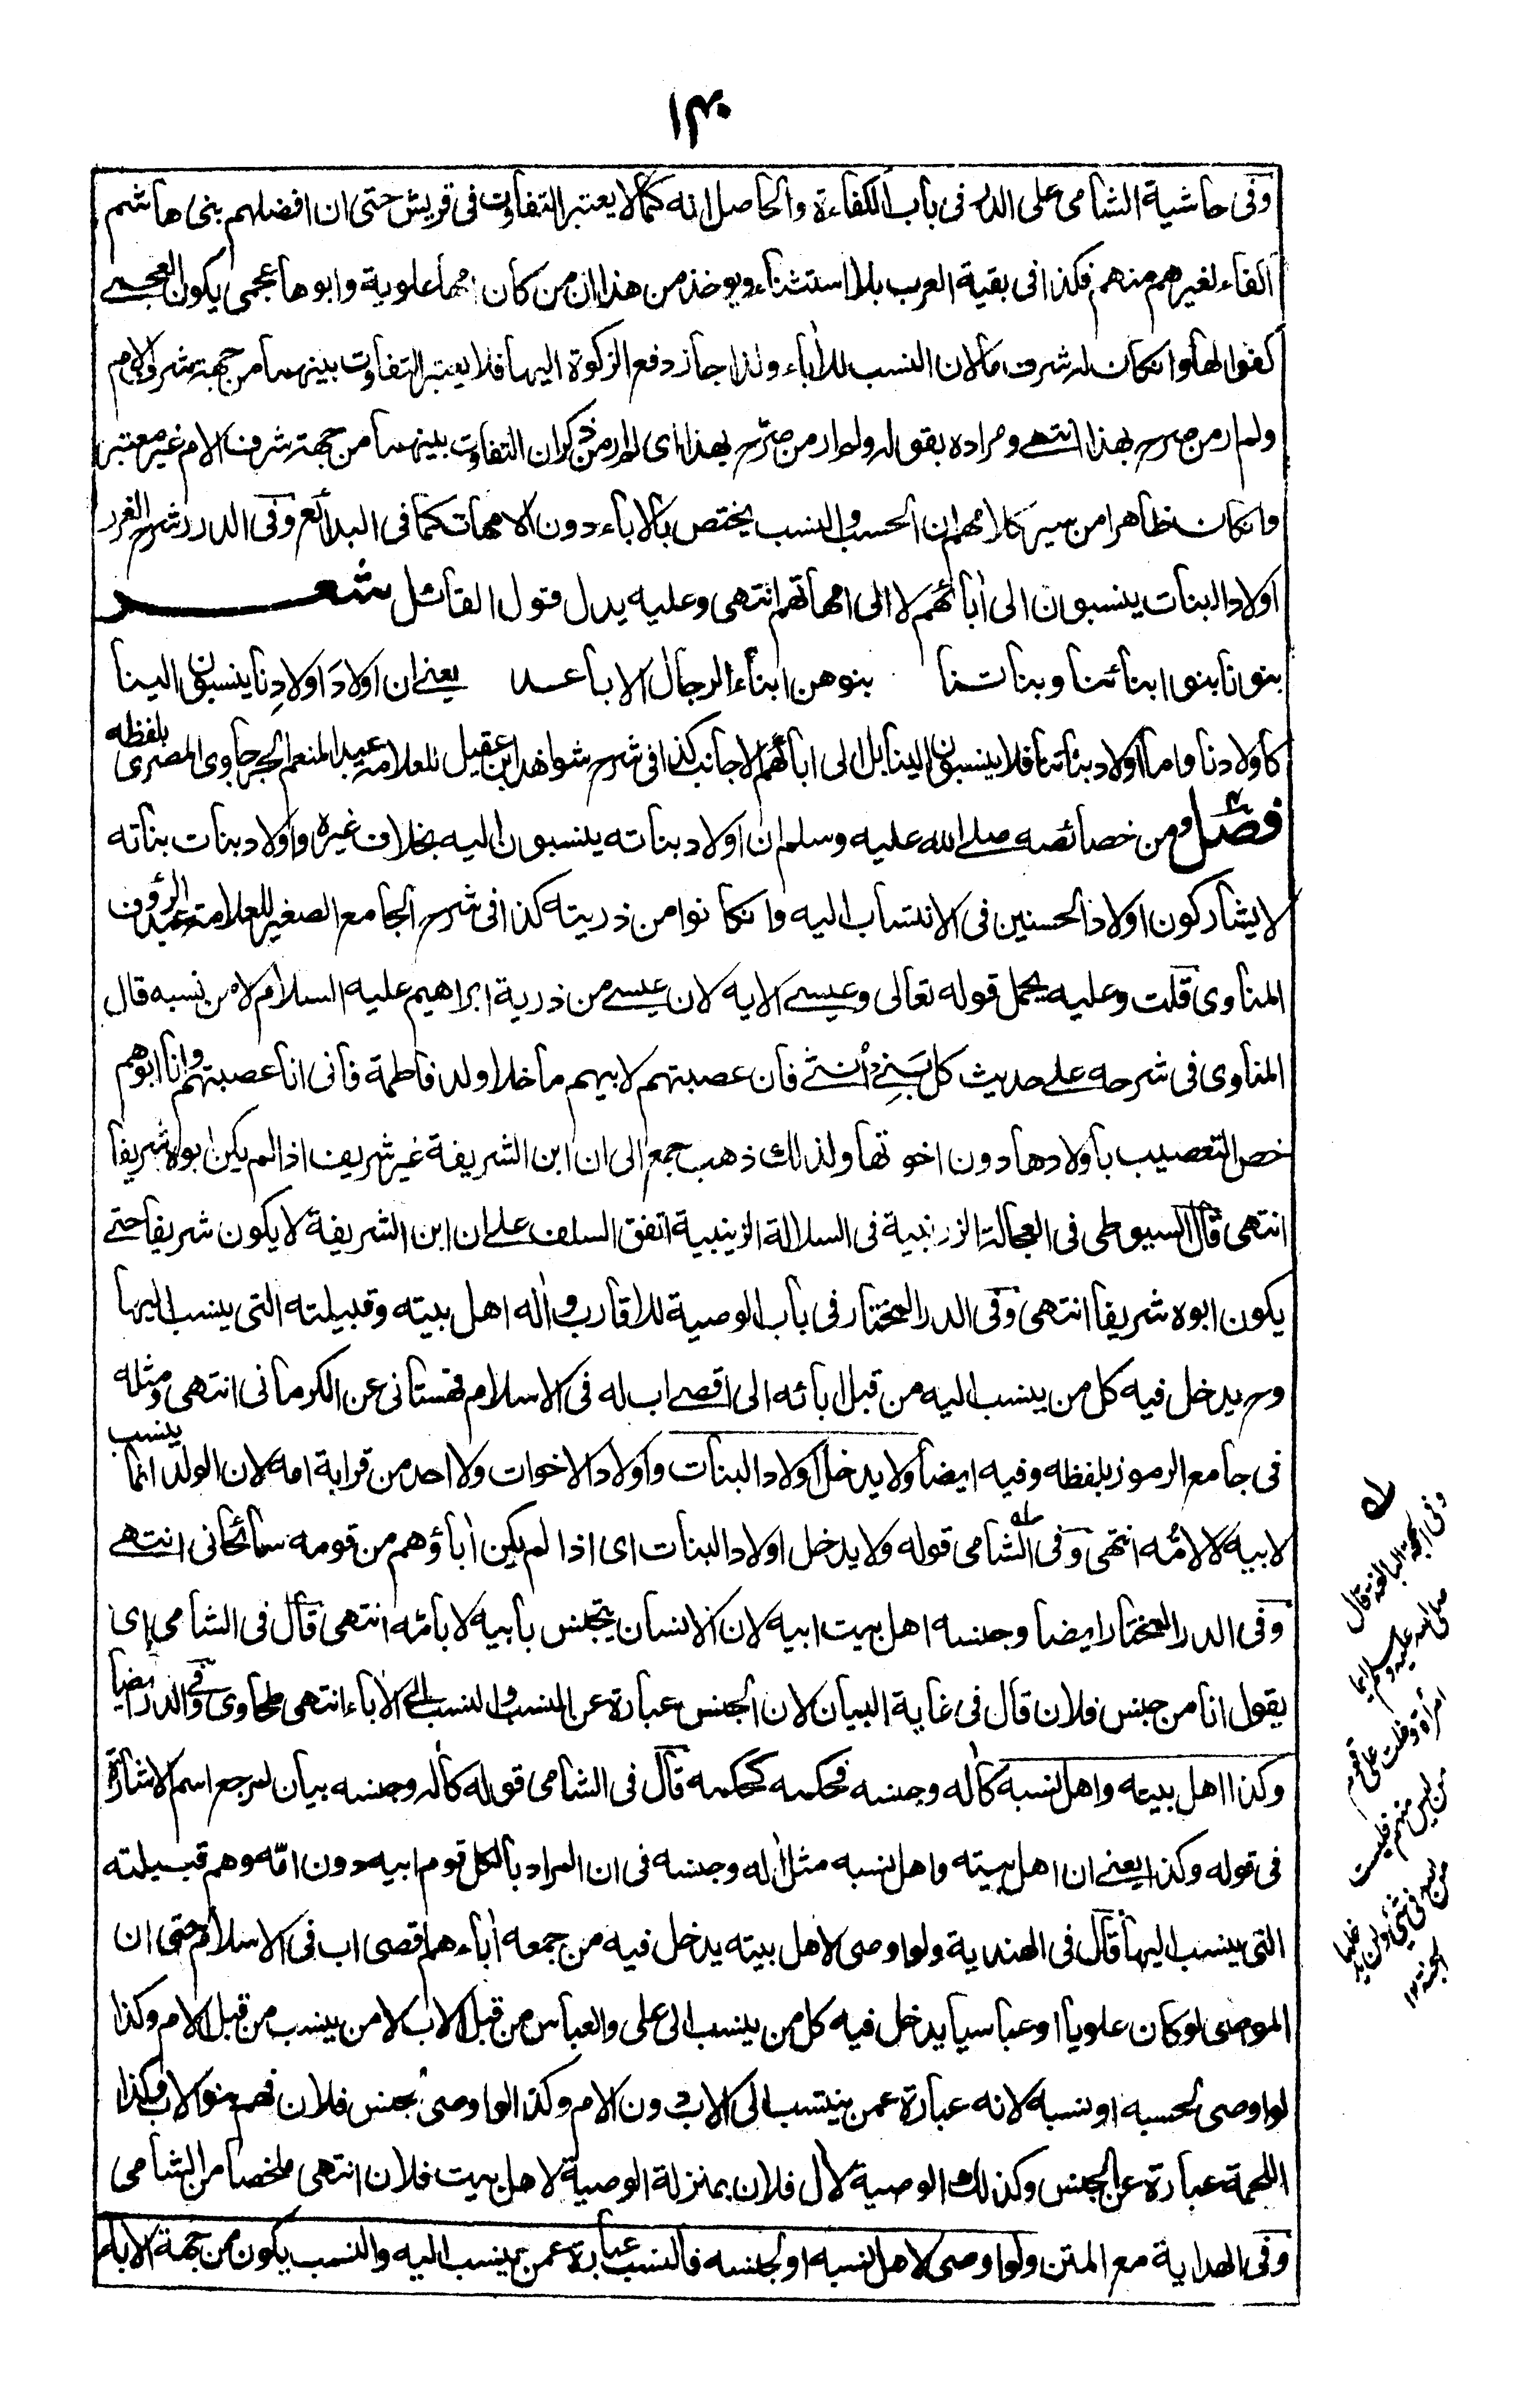 ١٣٠
وفى حاشية الشامى على الدر فى باب الكفاءة والحاصل انه كما لا يعتبر التفاوت فى قريش حتى ان افضلهم بنى هاشم
اكفاء لغيرهم منهم فكذا فى بقية العرب بلا استثناء ويوخذ من هذا ان من كان امها علوية وابوها عجمى يكون العجمے
كفوا لها وانكان له شرف ما لان النسب للاٰباء ولذا جاز دفع الزكوة اليها فلا يعتبر التفاوت بينهما من جهة شرف الام
ولم ار من صرح بهذا انتهے ومراده بقوله ولم ار من صرّح بهذا اى لم ار من ذكر ان التفاوت بينهما من جهة شرف الام غير معتبر
وانكان ظاهرا من سير كلامهم ان الحسب والنسب يختص بالاباء دون الامهات كما فى البدائع وفى الدرر شرح الغرر
اولاد البنات ينسبون الى اٰبائهم لا الى امهاتهم انتهى وعليه يدل قول القائل شعـــر
بنونا بنو ابنائنا وبناتنا بنوهن ابناء الرجال الاباعد يعنے ان اولادَ اولادِنا ينسبون الينا
كاولادنا واما اولاد بناتنا فلا ينسبون الينا بل الى ابائهم الاجانب كذا فى شرح شواهد ابن عقيل للعلامة عبد المنعم الجرجاوى المصرى بلفظه
فصل ومن خصائصه صلے الله عليه وسلم ان اولاد بناته ينسبون اليه بخلاف غيره واولاد بنات بناته
لا يشاركون اولاد الحسنين فى الانتساب اليه وانكانوا من ذريته كذا فى شرح الجامع الصغير للعلامة عبد الرؤف
المناوى قلت وعليه يحمل قوله تعالى وعيسے الايه لان عيسے من ذرية ابراهيم عليه السلام لا من نسبه قال
المناوى فى شرحه علے حديث كل بَنِے أنثے فان عصبتهم لابيهم ما خلا ولد فاطمة فانى انا عصبتهم وانا ابوهم
خص التعصيب باولادها دون اخوتها ولذلك ذهب جمع الى ان ابن الشريفة غير شريف اذا لم يكن ابوه شريفا
انتهى قال السيوطى فى العجالة الزرنبية فى السلالة الزينبية اتفق السلف علے ان ابن الشريفة لا يكون شريفا حتے
يكون ابوه شريفا انتهى وفى الدر المختار فى باب الوصية للاقارب واٰله اهل بيته وقبيلته التى ينسب اليها
وح يدخل فيه كل من ينسب اليه من قبل ابائه الى اقصے اب له فى الاسلام قهستانى عن الكرمانى انتهى ومثله
فى جامع الرموز بلفظه وفيه ايضا ولا يدخل اولاد البنات واولاد الاخوات ولا احد من قرابة امه لان الولد انما ينسب
لابيه لا لامّه انتهى وفى الشامى قوله ولا يدخل اولاد البنات اى اذا لم يكن اٰباؤهم من قومه سائحانى انتهے
وفى الدر المختار ايضا وجنسه اهل بيت ابيه لان الانسان يتجنس بابيه لا بامّه انتهى قال فى الشامى اى
يقول انا من جنس فلان قال فى غاية البيان لان الجنس عبارة عن النسب والنسب الى الاباء انتهى طحاوى وفى الدر ايضا
وكذا اهل بيته واهل نسبه كاٰله وجنسه فحكمه كحكمه قال فى الشامى قوله كاٰله وجنسه بيان لمرجع اسم الاشارة
فى قوله وكذا يعنے ان اهل بيته واهل نسبه مثل اٰله وجنسه فى ان المراد بالكل قوم ابيه دون امّه وهم قبيلته
التى ينسب اليها قال فى الهندية ولو اوصى لاهل بيته يدخل فيه من جمعه اٰباءهم اقصى اب فى الاسلام حتى ان
الموصى لو كان علويا او عباسيا يدخل فيه كل من ينسب الى على والعباس من قبل الاب لا من ينسب من قبل الام وكذا
لو اوصى لحسبه او نسبه لانه عبارة عمن ينتسب الى الاب دون الام وكذا لو اوصى لجنس فلان فهم بنو الاب وكذا
اللحمة عبارة عن الجنس وكذلك الوصية لال فلان بمنزلة الوصية لاهل بيت فلان انتهى ملخصا من الشامى
وفى الهداية مع المتن ولو اوصى لاهل نسبه او لجنسه فالنسب عبارة عمن ينسب اليه والنسب يكون من جهة الاباء
وفى الحجة البالغة قال
صلى الله عليه وسلم ايما
امرأة ادخلت على قوم
من ليس منهم فليست
من الله فى شئ ولن يدخلها
الجنة ١٢